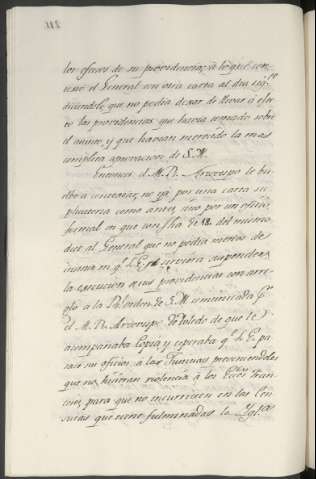 los efectos de su providencia; à lo qual con
textó el General con otra carta al dia sig.te
diciendole, que no podia dexar de llevar à efec
to las providencias que havia tomado sobre
el asunto, y que havian merecido la mas
cumplida aprovacion de S. M.
Entonces el M. R. Arzobispo le bu
elbe à contextar, no ya por una carta su
plicatoria como antes, sino por un oficio
formal en que con fha de 18. del mismo
dice al General que no podia menos de
en q.e S. E. se sirviera suspender
la execucion de sus providencias con arre
glo à la Rl orden de S. M. comunicada p.r
el M. R. Arzobispo de Toledo de que le
acompañaba Copia, y esperaba q.e S. E. pa
sase sus oficios à las Justicias previniendoles
que no hicieran violencia à los Ecc.cos Fran
ceses, para que no incurriesen en las Cen
suras que tiene fulminadas la Igl.ia